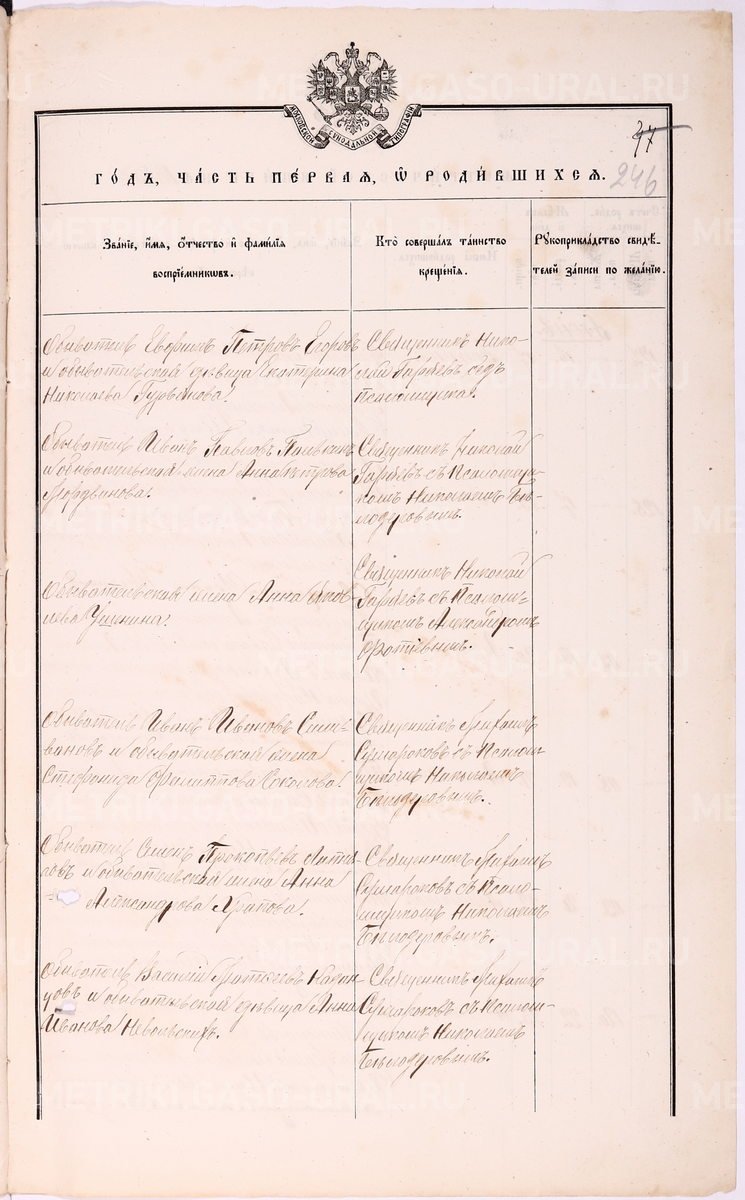 МОСКОВСКОЙ СѴНОДАЛЬНОЙ ТИПОГРАФІИ
246
ГО́ДЪ, ЧА́СТЬ ПЕ́РВАЯ, Ѿ РОДИ́ВШИХСЯ.
Зва́нїе, и́мя, о́тчество и фами́лїя
воспрїе́мниковъ.
Кто̀ соверша́лъ та́инство
креще́нїя.
Рꙋкоприкла́дство свидѣ́-
телей за́писи по жела́нїю.
Обыватель Петровъ Егоровъ
и обывательская дѣвица Екатерина
Николаева
Священникъ Нико-
лай
псаломщика.
Обыватель Иванъ Павловъ
и обывательская жена Анна Петрова
Мордвинова.
Священникъ Николай
съ Псаломщи-
комъ Николаемъ Бѣ-
лодуровымъ.
Обывательская жена Анна Яков-
лева Ушкина.
Священникъ Николай
съ Псалом-
щикомъ Александромъ
Обыватель Иванъ Ивановъ Сели-
вановъ и обывательская жена
Стефанида Филиппова Соколова.
Священникъ Михаилъ
Сумароковъ съ Псалом-
щикомъ Николаемъ
Бѣлодуровымъ.
Обыватель Семенъ Прокопьевъ
и обывательская жена Анна
Александрова Храпова.
Священникъ Михаилъ
Сумароковъ съ Псалом-
щикомъ Николаемъ
Бѣлодуровымъ.
Обыватель Василій Матвеевъ
и обывательская дѣвица Анна
Иванова Невольскихъ.
Священникъ Михаилъ
Сумароковъ съ Псалом-
щикомъ Николаемъ
Бѣлодуровымъ.
METRIKI.GASO-URAL.RU